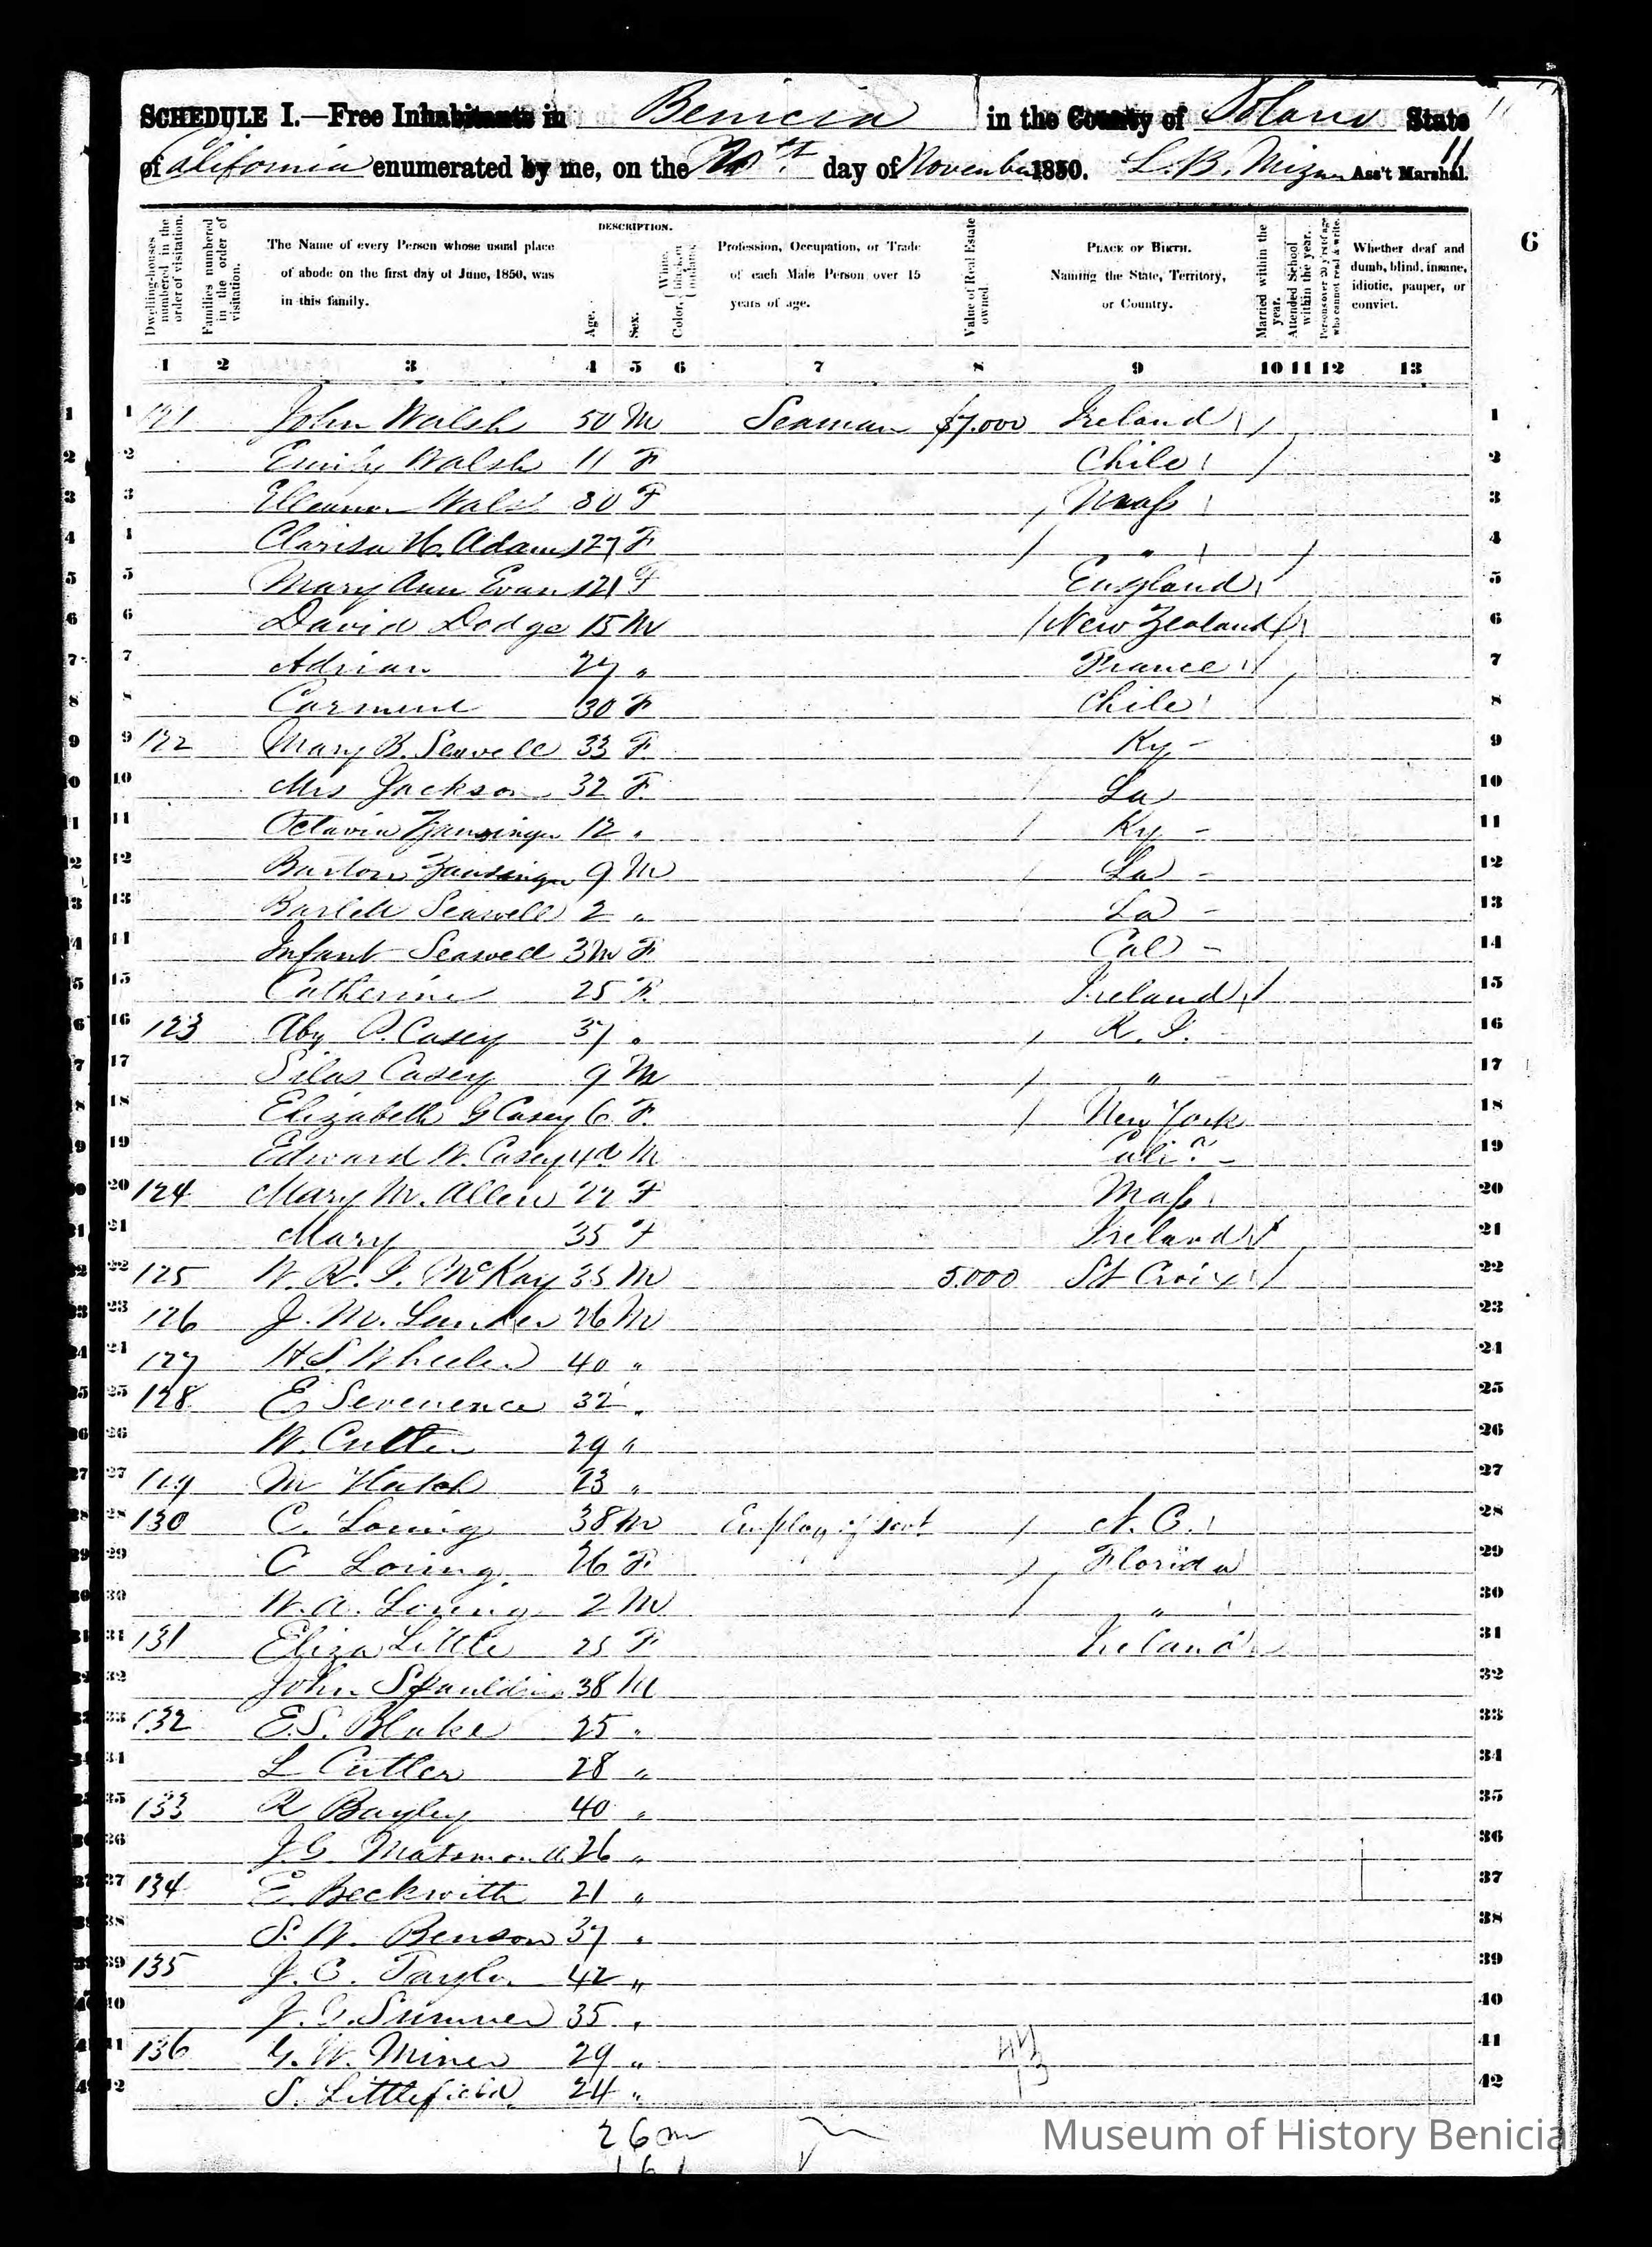 SCHEDULE I.—Free Inhabitants in Benicia in the County of Solano State
of California enumerated by me, on the day of November 1850. L. B. Mizner Ass't Marshal.
11
6
DESCRIPTION.
Dwelling-houses numbered in the order of visitation.
Families numbered in the order of visitation.
The Name of every Person whose usual place of abode on the first day of June, 1850, was in this family.
Age.
Sex.
Color, White, black, or mulatto.
Profession, Occupation, or Trade of each Male Person over 15 years of age.
Value of Real Estate owned.
PLACE OF BIRTH. Naming the State, Territory, or Country.
Married within the year.
Attended School within the year.
Persons over 20 y'rs of age who cannot read & write.
Whether deaf and dumb, blind, insane, idiotic, pauper, or convict.
1 2 3 4 5 6 7 8 9 10 11 12 13
1 121 John Walsh 50 M Seaman $7.000 Ireland 1
2 Emily Walsh 11 F Chile 2
3 Elleanor Walsh 30 F Mass 3
4 Clarisa H. Adams 27 F " 4
5 Mary Ann Evans 21 F England 5
6 David Dodge 15 M New Zealand 6
7 Adrian 27 " France 7
8 Carmene 30 F Chile 8
9 122 Mary B. Seawell 33 F. Ky 9
10 Mrs Jackson 32 F. La 10
11 Octavia Zansinger 12 " Ky 11
12 Barton Zansinger 9 M La 12
13 Seawell 2 " La 13
14 Infant Seawell 3m F. Cal 14
15 Catherine 25 F. Ireland 15
16 123 Aby P. Casey 37 " R. I. 16
17 Silas Casey 9 M " 17
18 Elizabeth G Casey 6 F. New York 18
19 Edward W. Casey 4d M Cali.a 19
20 124 Mary M. Allen 22 F Mass 20
21 Mary 35 F Ireland 21
22 125 W. R. I. McKay 35 M 5.000 St Croix 22
23 126 J. M. 26 M 23
24 127 H. S Wheeler 40 " 24
25 128 E Severence 32 " 25
26 W. Cutter 29 " 26
27 129 M Hatch 23 " 27
28 130 C. Loring 38 M Employ of Govt N. C. 28
29 C Loring 26 F Florida 29
30 W. A. Loring 2 M " 30
31 131 Eliza Little 25 F Ireland 31
32 John Spaulding 38 M 32
33 132 E. S. Blake 25 " 33
34 L Cutler 28 " 34
35 133 R Bayley 40 " 35
36 J. G. 26 " 36
37 134 E. Beckwith 21 " 37
38 S. W. Benson 37 " 38
39 135 J. C. Taylor 42 " 39
40 J. G. Sumner 35 " 40
41 136 G. W. Miner 29 " 41
42 S. Littlefield 24 " 42
26 m
16
Museum of History Benicia